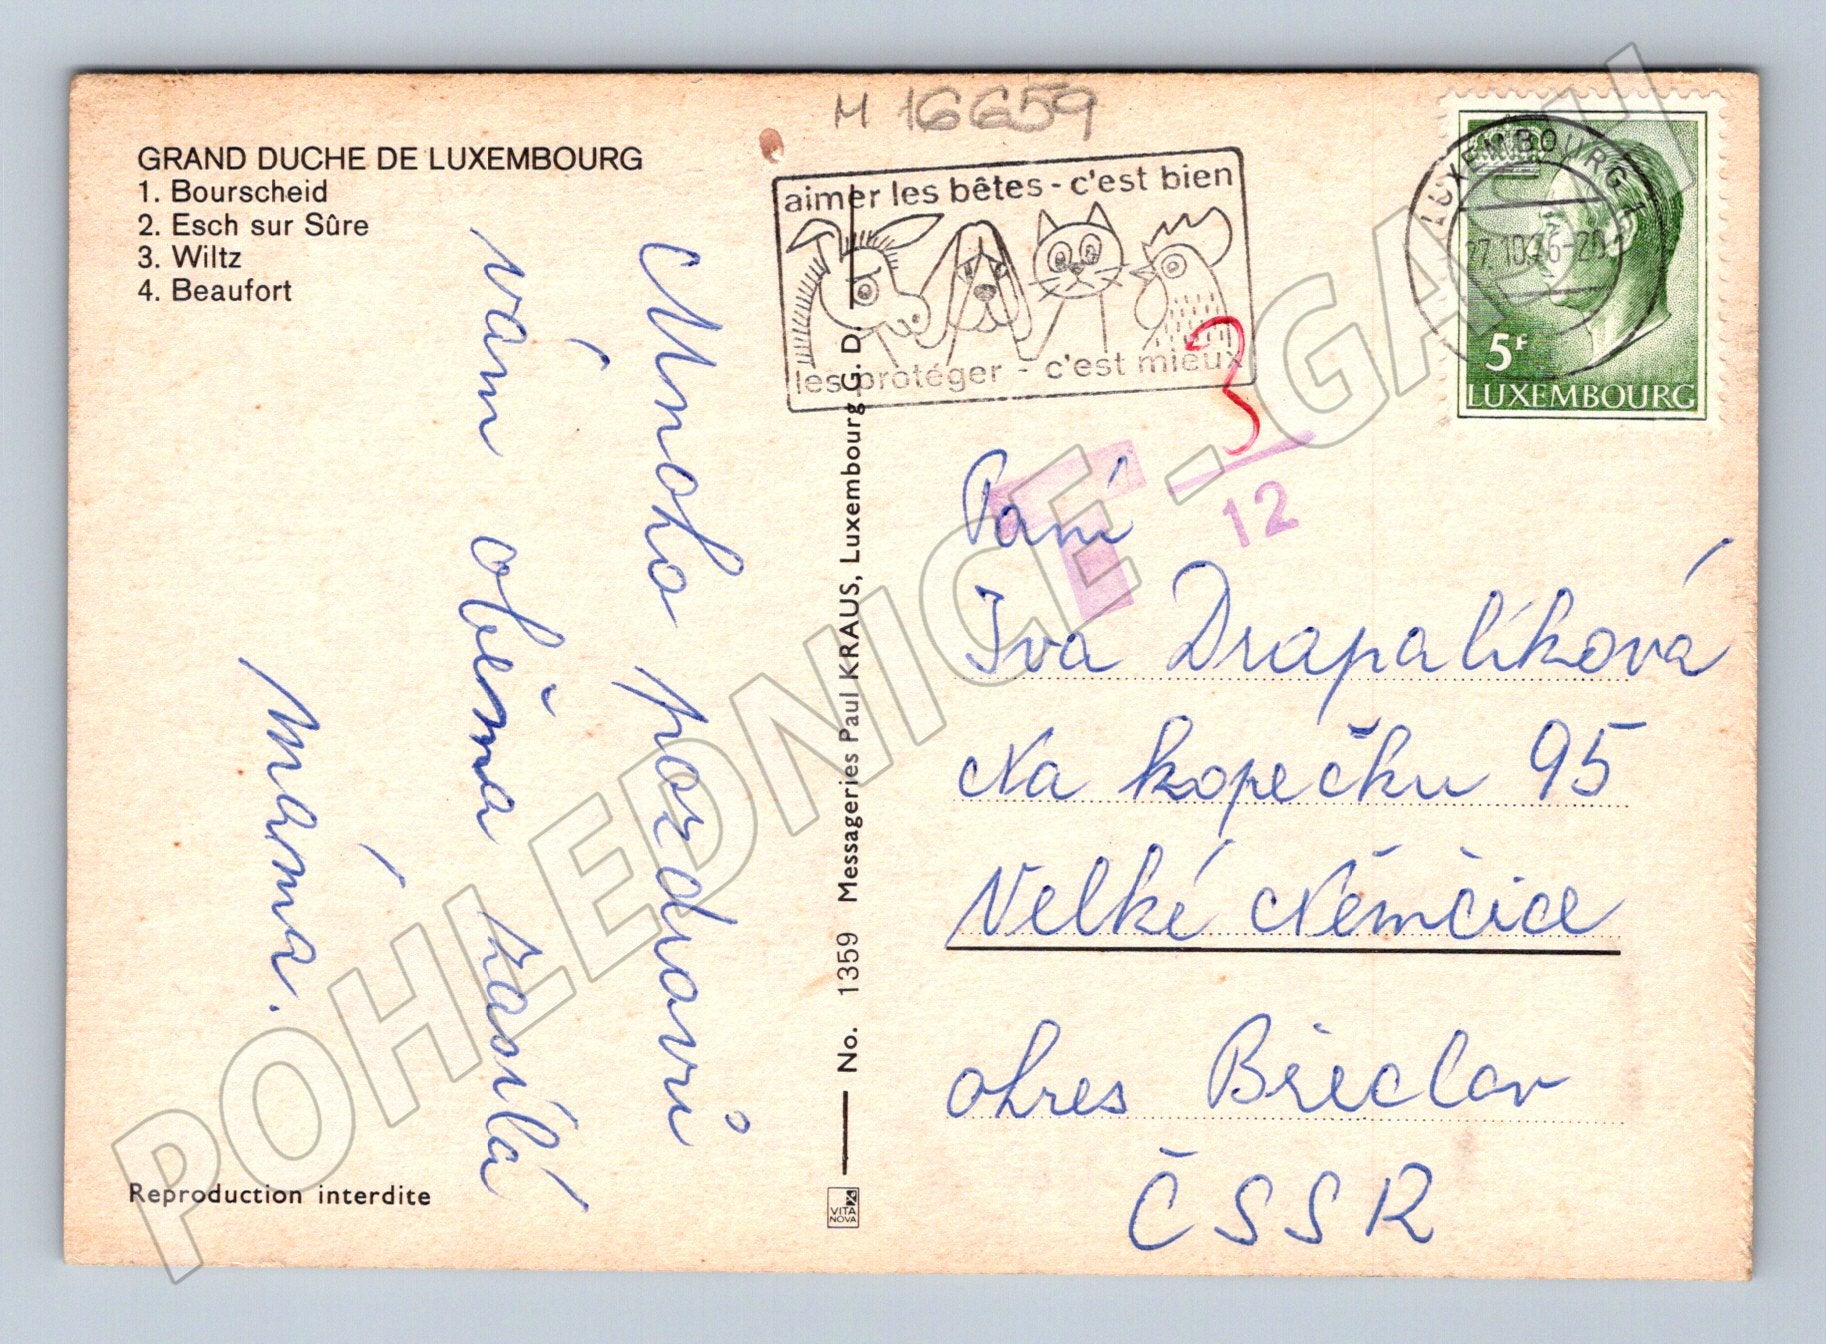 M 16659
GRAND DUCHE DE LUXEMBOURG
1. Bourscheid
2. Esch sur Sûre
3. Wiltz
4. Beaufort
aimer les bêtes - c'est bien
les protéger - c'est mieux
LUXEMBOURG 1
27.10.76-20
5F
LUXEMBOURG
T
3
12
Mnoho pozdravů
vám oběma zasílá
máma.
Paní
Iva Drapalíková
Na kopečku 95
Velké Němčice
okres Břeclav
ČSSR
No. 1359 Messageries Paul KRAUS, Luxembourg G. D.
Reproduction interdite
VITA
NOVA
POHLEDNICE - GASH